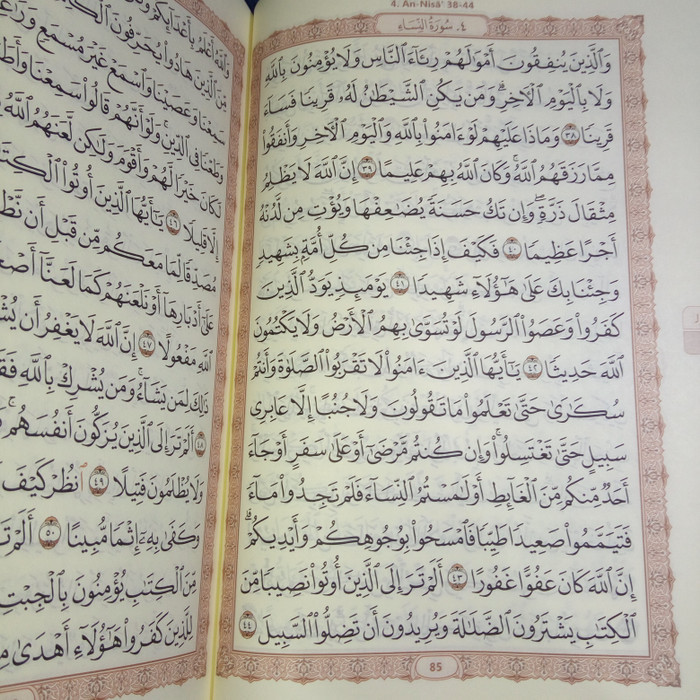 4. An-Nisā' 38-44
٤. سُورَةُ النِّسَاءِ
وَالَّذِينَ يُنفِقُونَ أَمْوَٰلَهُمْ رِئَآءَ النَّاسِ وَلَا يُؤْمِنُونَ بِاللَّهِ
وَلَا بِالْيَوْمِ الْآخِرِ ۗ وَمَن يَكُنِ الشَّيْطَٰنُ لَهُۥ قَرِينًا فَسَآءَ
قَرِينًا ٣٨ وَمَاذَا عَلَيْهِمْ لَوْ ءَامَنُوا بِاللَّهِ وَالْيَوْمِ الْآخِرِ وَأَنفَقُوا
مِمَّا رَزَقَهُمُ اللَّهُ ۚ وَكَانَ اللَّهُ بِهِمْ عَلِيمًا ٣٩ إِنَّ اللَّهَ لَا يَظْلِمُ
مِثْقَالَ ذَرَّةٍ ۖ وَإِن تَكُ حَسَنَةً يُضَٰعِفْهَا وَيُؤْتِ مِن لَّدُنْهُ
أَجْرًا عَظِيمًا ٤٠ فَكَيْفَ إِذَا جِئْنَا مِن كُلِّ أُمَّةٍ بِشَهِيدٍ
وَجِئْنَا بِكَ عَلَىٰ هَٰٓؤُلَآءِ شَهِيدًا ٤١ يَوْمَئِذٍ يَوَدُّ الَّذِينَ
كَفَرُوا وَعَصَوُا الرَّسُولَ لَوْ تُسَوَّىٰ بِهِمُ الْأَرْضُ وَلَا يَكْتُمُونَ
اللَّهَ حَدِيثًا ٤٢ يَٰٓأَيُّهَا الَّذِينَ ءَامَنُوا لَا تَقْرَبُوا الصَّلَوٰةَ وَأَنتُمْ
سُكَٰرَىٰ حَتَّىٰ تَعْلَمُوا مَا تَقُولُونَ وَلَا جُنُبًا إِلَّا عَابِرِى
سَبِيلٍ حَتَّىٰ تَغْتَسِلُوا ۚ وَإِن كُنتُم مَّرْضَىٰٓ أَوْ عَلَىٰ سَفَرٍ أَوْ جَآءَ
أَحَدٌ مِّنكُم مِّنَ الْغَآئِطِ أَوْ لَٰمَسْتُمُ النِّسَآءَ فَلَمْ تَجِدُوا مَآءً
فَتَيَمَّمُوا صَعِيدًا طَيِّبًا فَامْسَحُوا بِوُجُوهِكُمْ وَأَيْدِيكُمْ ۗ
إِنَّ اللَّهَ كَانَ عَفُوًّا غَفُورًا ٤٣ أَلَمْ تَرَ إِلَى الَّذِينَ أُوتُوا نَصِيبًا مِّنَ
الْكِتَٰبِ يَشْتَرُونَ الضَّلَٰلَةَ وَيُرِيدُونَ أَن تَضِلُّوا السَّبِيلَ ٤٤
85
وَاللَّهُ أَعْلَمُ بِأَعْدَآئِكُمْ وَكَفَىٰ
مِّنَ الَّذِينَ هَادُوا يُحَرِّفُونَ
سَمِعْنَا وَعَصَيْنَا وَاسْمَعْ غَيْرَ مُسْمَعٍ
وَطَعْنًا فِى الدِّينِ ۚ وَلَوْ أَنَّهُمْ قَالُوا سَمِعْنَا
لَكَانَ خَيْرًا لَّهُمْ وَأَقْوَمَ وَلَٰكِن لَّعَنَهُمُ اللَّهُ
إِلَّا قَلِيلًا ٤٦ يَٰٓأَيُّهَا الَّذِينَ أُوتُوا
مُصَدِّقًا لِّمَا مَعَكُم مِّن قَبْلِ أَن
عَلَىٰٓ أَدْبَارِهَآ أَوْ نَلْعَنَهُمْ كَمَا لَعَنَّآ
اللَّهِ مَفْعُولًا ٤٧ إِنَّ اللَّهَ لَا يَغْفِرُ أَن
ذَٰلِكَ لِمَن يَشَآءُ ۚ وَمَن يُشْرِكْ بِاللَّهِ
٤٨ أَلَمْ تَرَ إِلَى الَّذِينَ يُزَكُّونَ أَنفُسَهُم ۚ
وَلَا يُظْلَمُونَ فَتِيلًا ٤٩ انظُرْ كَيْفَ
وَكَفَىٰ بِهِۦٓ إِثْمًا مُّبِينًا ٥٠ أَلَمْ
مِّنَ الْكِتَٰبِ يُؤْمِنُونَ بِالْجِبْتِ
لِلَّذِينَ كَفَرُوا هَٰٓؤُلَآءِ أَهْدَىٰ